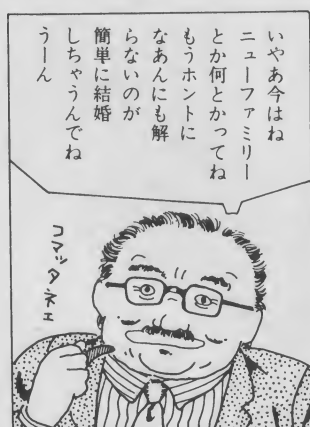 いやあ今はね
ニューファミリー
とか何とかってね
もうホントに
なあんにも解
らないのが
簡単に結婚
しちゃうんでね
うーん
コマッタネェ